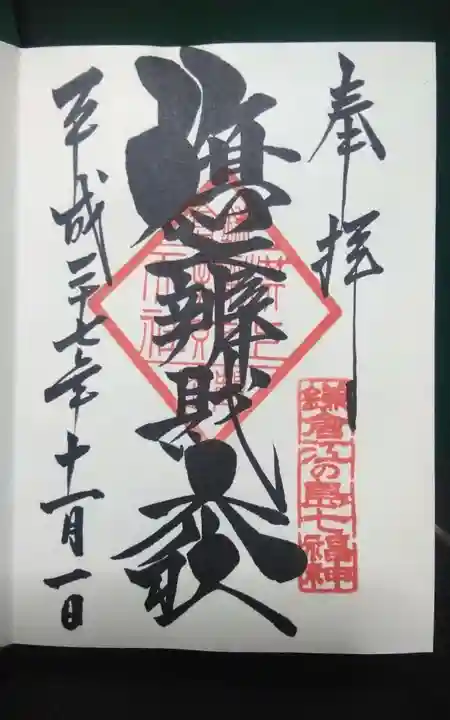 奉拝
鎌倉江の島七福神
旗上辨財天社
平成二十七年十一月一日